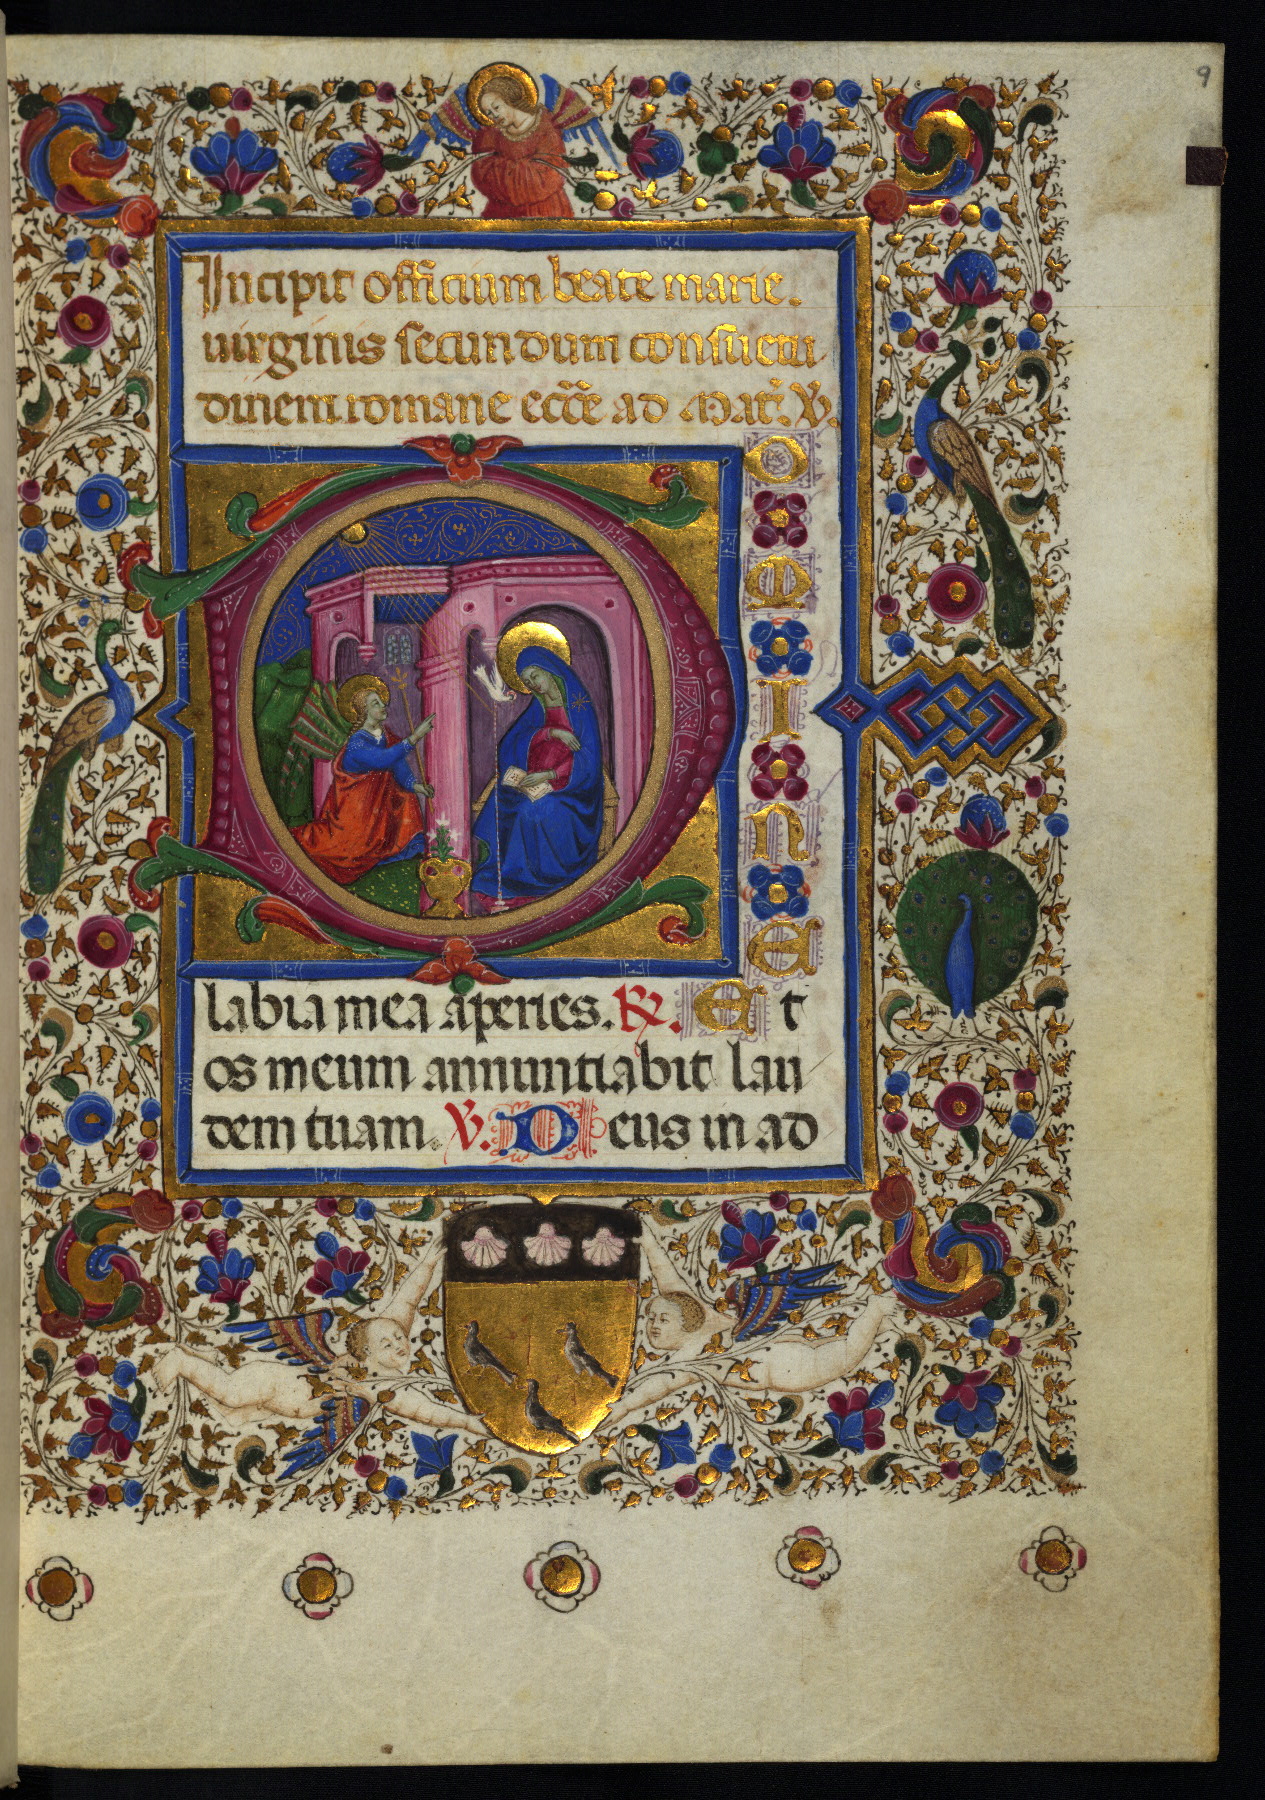 9
Incipit officium beate marie.
uirginis secundum consuetu
dinem romane ecc̄e ad Mat̄. ℣.
DOMINE
labia mea aperies. ℟. Et
os meum annuntiabit lau
dem tuam. ℣. Deus in ad